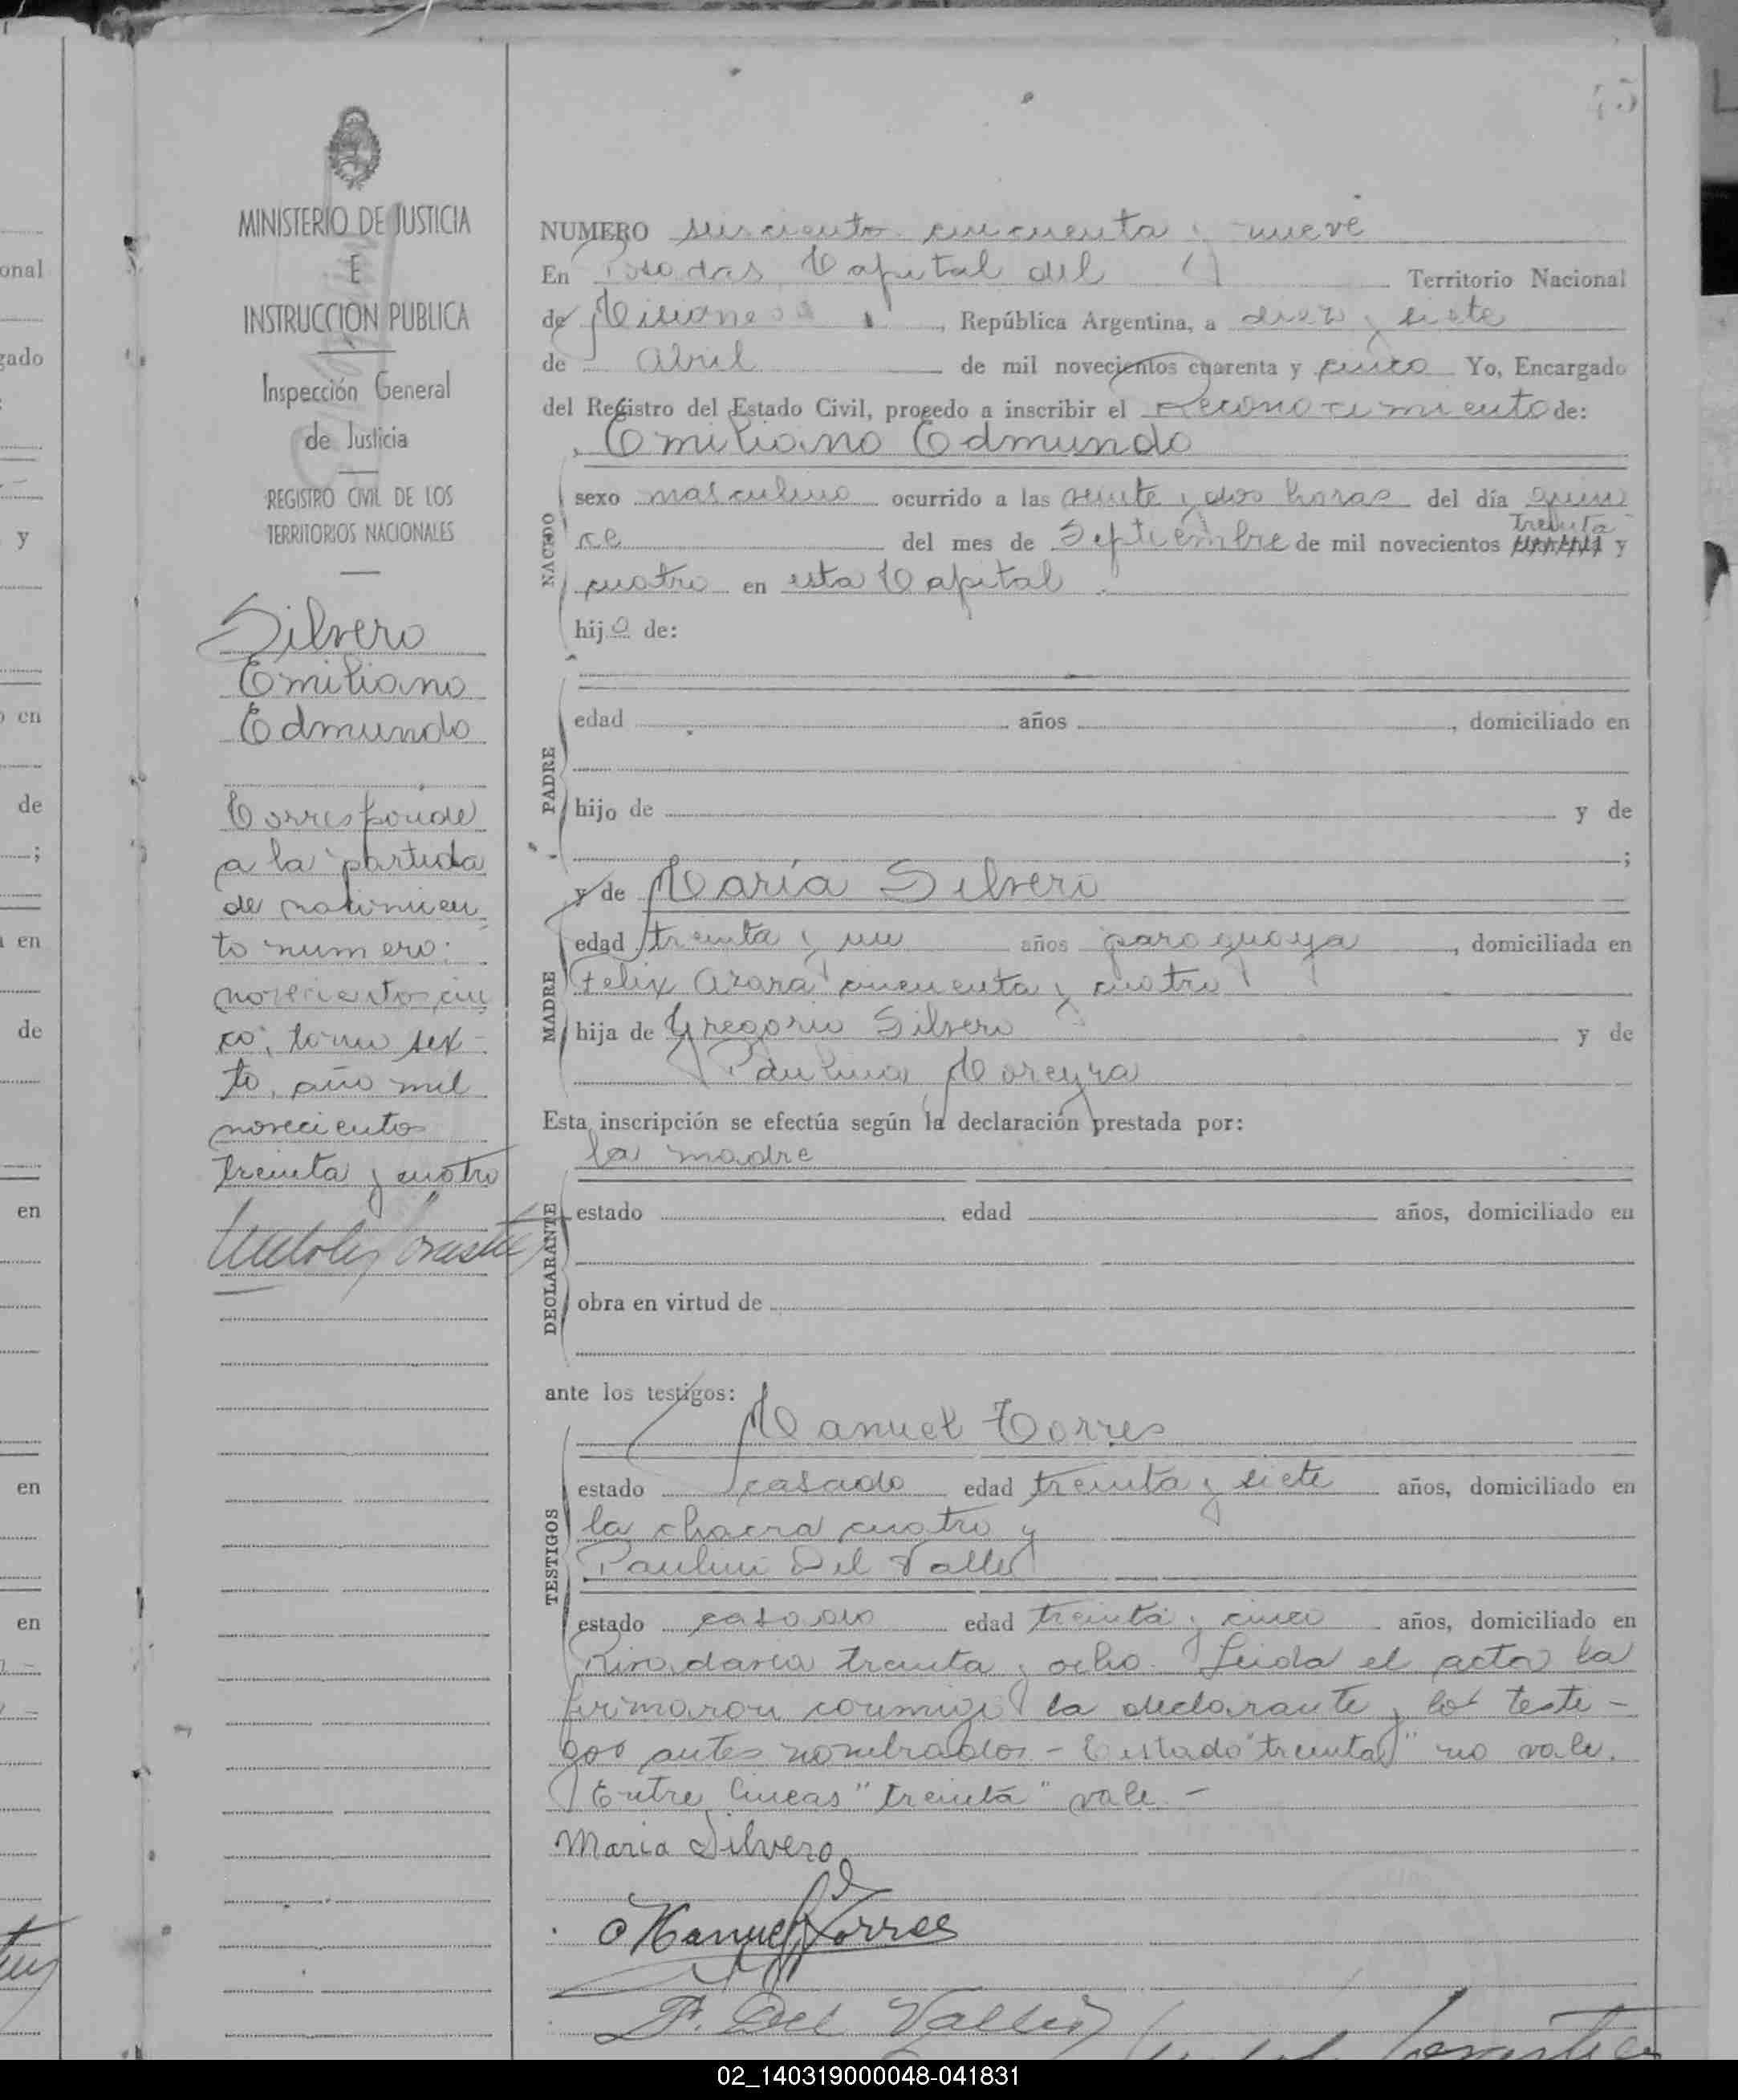 45
MINISTERIO DE JUSTICIA
E
INSTRUCCION PUBLICA
Inspección General
de Justicia
REGISTRO CIVIL DE LOS
TERRITORIOS NACIONALES
Silvero
Emiliano
Edmundo
Corresponde
a la partida
de nacimien
to numero:
novecientos cin
co, tomo sex-
to, año mil
novecientos
treinta y cuatro
NUMERO seiscientos cincuenta y nueve
En Posadas Capital del Territorio Nacional
de Misiones, República Argentina, a diez y siete
de Abril de mil novecientos cuarenta y cinco Yo, Encargado
del Registro del Estado Civil, procedo a inscribir el reconocimiento de:
Emiliano Edmundo
NACIDO
sexo masculino ocurrido a las veinte y dos horas del día quin
treinta
ce del mes de Septiembre de mil novecientos y
cuatro en esta Capital
hijo de:
PADRE
edad años , domiciliado en
hijo de y de
;
y de María Silvero
MADRE
edad treinta y un años paraguaya, domiciliada en
Felix Azara cincuenta y cuatro
hija de Gregorio Silvero y de
Paulina Moreyra
Esta inscripción se efectúa según la declaración prestada por:
la madre
DECLARANTE
estado edad años, domiciliado en
obra en virtud de
ante los testigos:
Manuel Torres
TESTIGOS
estado casado edad treinta y siete años, domiciliado en
la chacra cuatro y
Paulino Del Valle
estado casado edad treinta y cinco años, domiciliado en
Rivadavia treinta y ocho. Leida el acta la
firmaron conmigo la declarante y los testi-
gos antes nombrados - Testado "treinta" no vale.
Entre lineas "treinta" vale. -
Maria Silvero
Manuel Torres
P. Del Valle
onal
gado
y
en
de
;
en
de
en
en
en
02_140319000048-041831